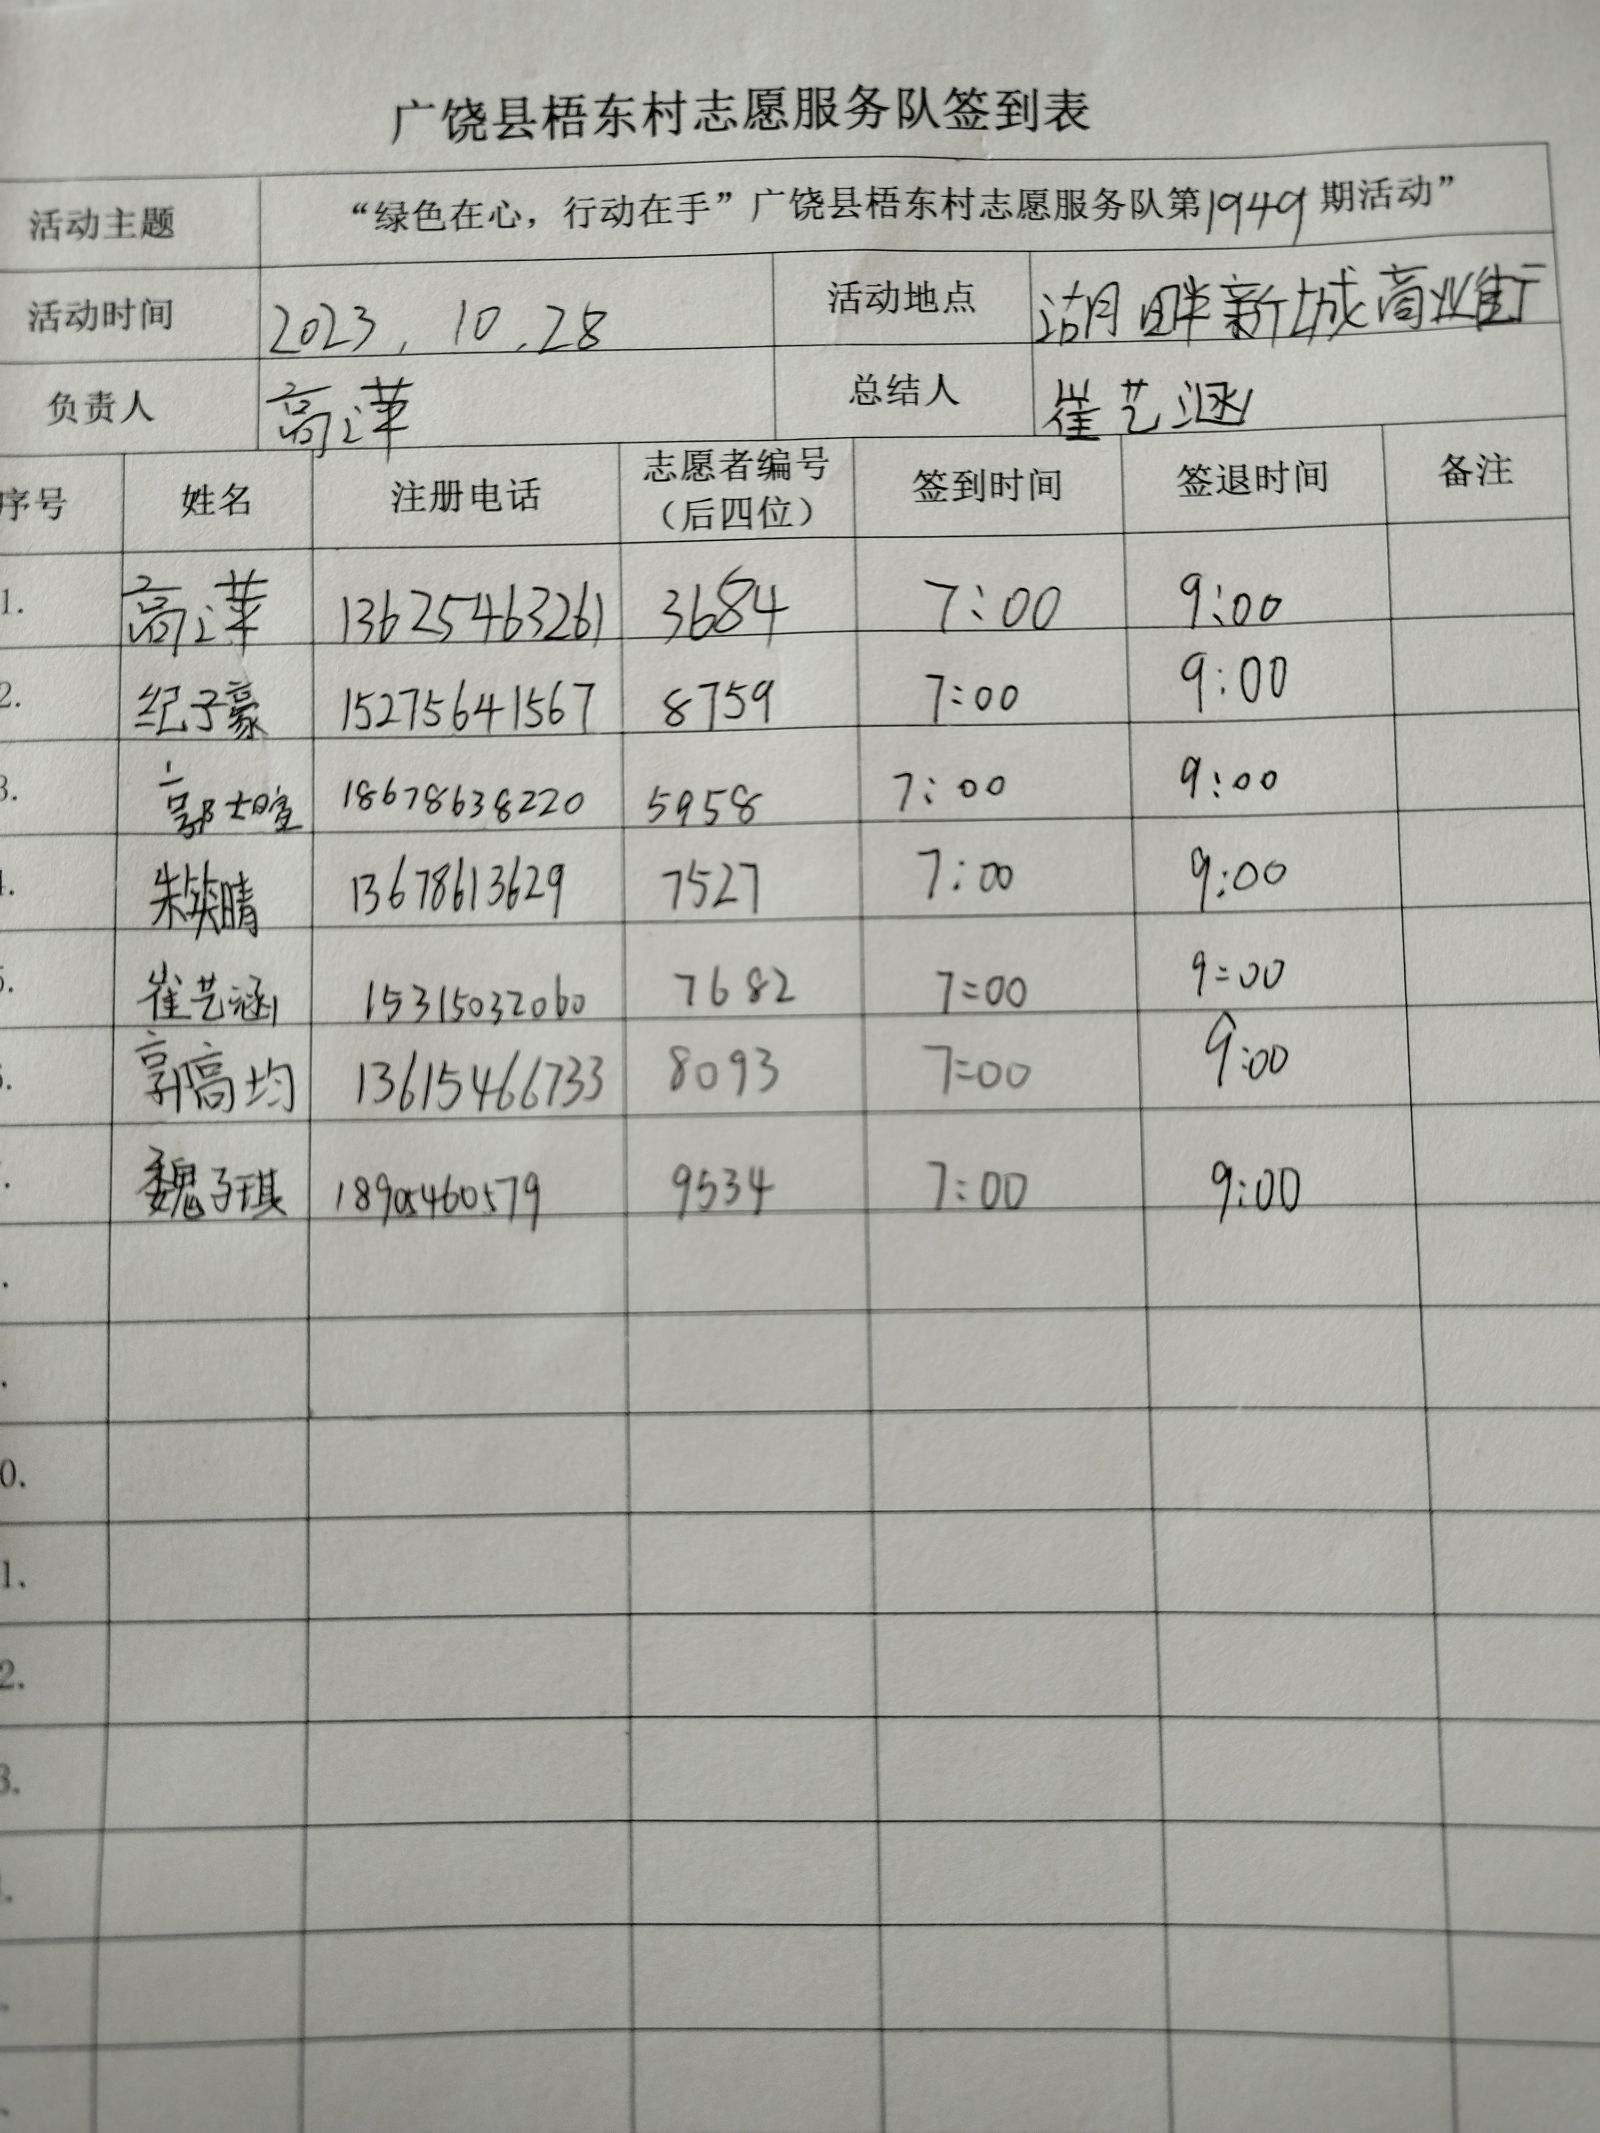 广饶县梧东村志愿服务队签到表
活动主题 “绿色在心，行动在手”广饶县梧东村志愿服务队第1949期活动”
活动时间 2023.10.28 活动地点 湖畔新城商业街
负责人 高 总结人 崔艺涵
序号 姓名 注册电话 志愿者编号（后四位） 签到时间 签退时间 备注
1. 高 13625463261 3684 7:00 9:00
2. 纪子豪 15275641567 8759 7:00 9:00
3. 郭 18678638220 5958 7:00 9:00
朱笑晴 13678613629 7527 7:00 9:00
崔艺涵 15315032060 7682 7:00 9:00
郭高均 13615466733 8093 7:00 9:00
魏子琪 18905460579 9534 7:00 9:00
0.
1.
2.
3.